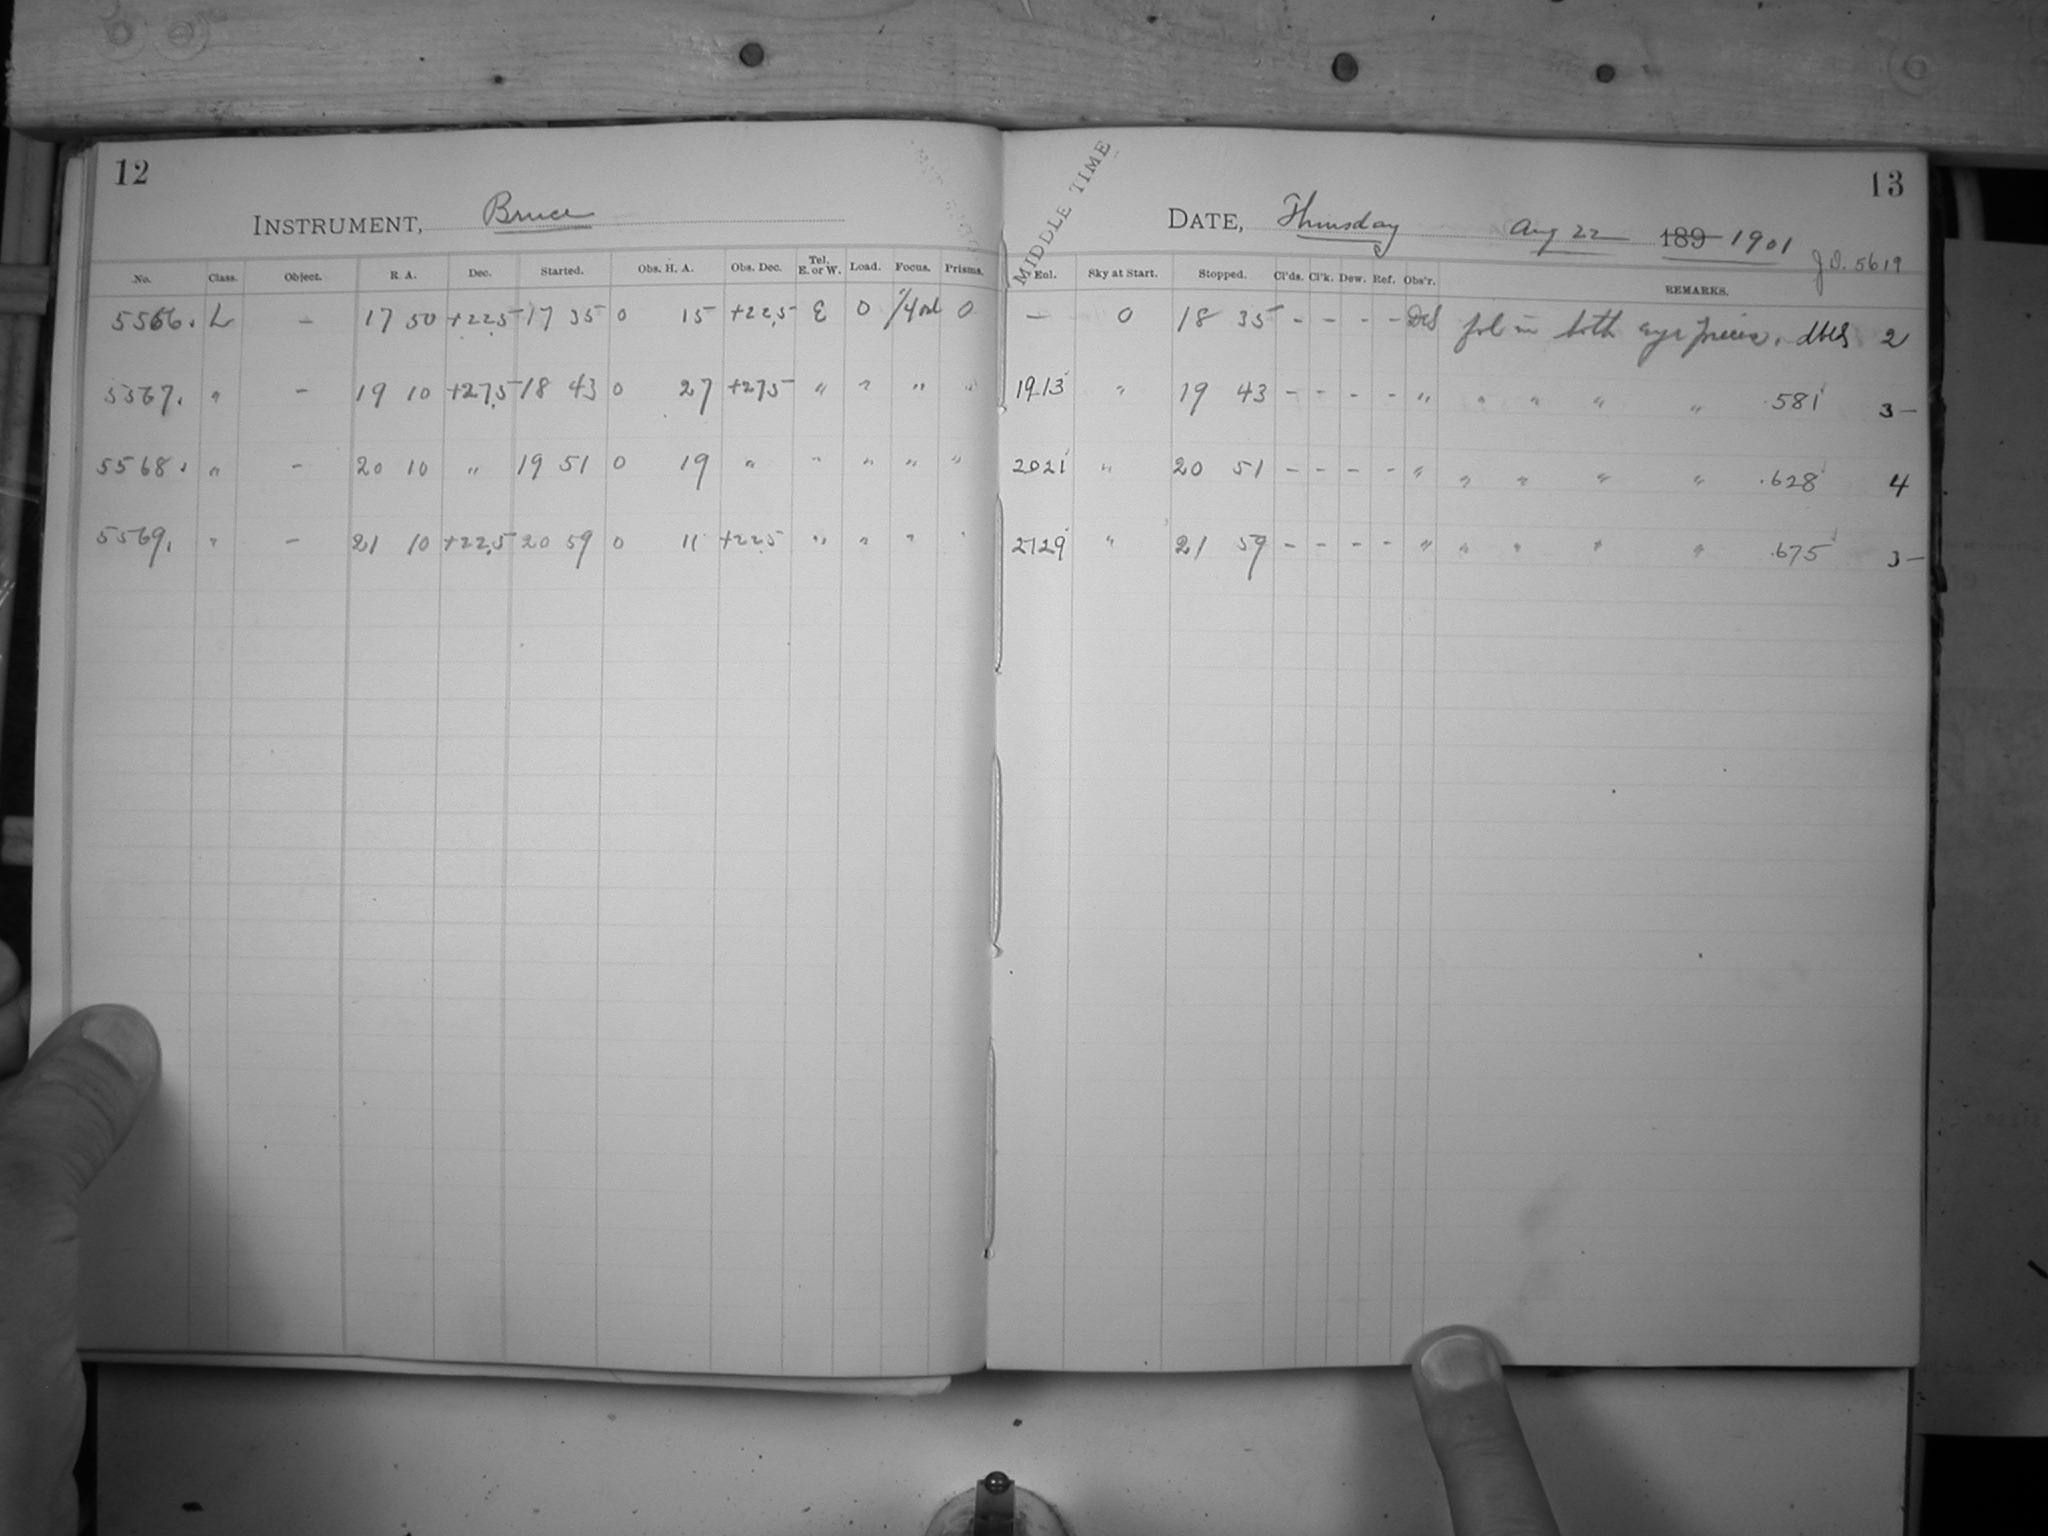 12
INSTRUMENT, Bruce
No. Class. Object. R. A. Dec. Started. Obs. H. A. Obs. Dec. Tel. E. or W. Load. Focus. Prisms.
5566. L - 17 50 +22,5 17 35 0 15 +22,5 E 0 0
5567. " - 19 10 +27,5 18 43 0 27 +27,5 " " " "
5568. " - 20 10 " 19 51 0 19 " " " " "
5569. " - 21 10 +22,5 20 59 0 11 +22,5 " " " "
13
MIDDLE TIME
DATE, Thursday Aug 22 189 1901
J.D. 5619
Enl. Sky at Start. Stopped. Cl'ds. Cl'k. Dew. Ref. Obs'r. REMARKS.
— 0 18 35 - - - - fol in both eye pieces. 2
19 13 " 19 43 - - - - " " " " " .581 3-
20 21 " 20 51 - - - - " " " " " .628 4
21 29 " 21 59 - - - - " " " " " .675 3-